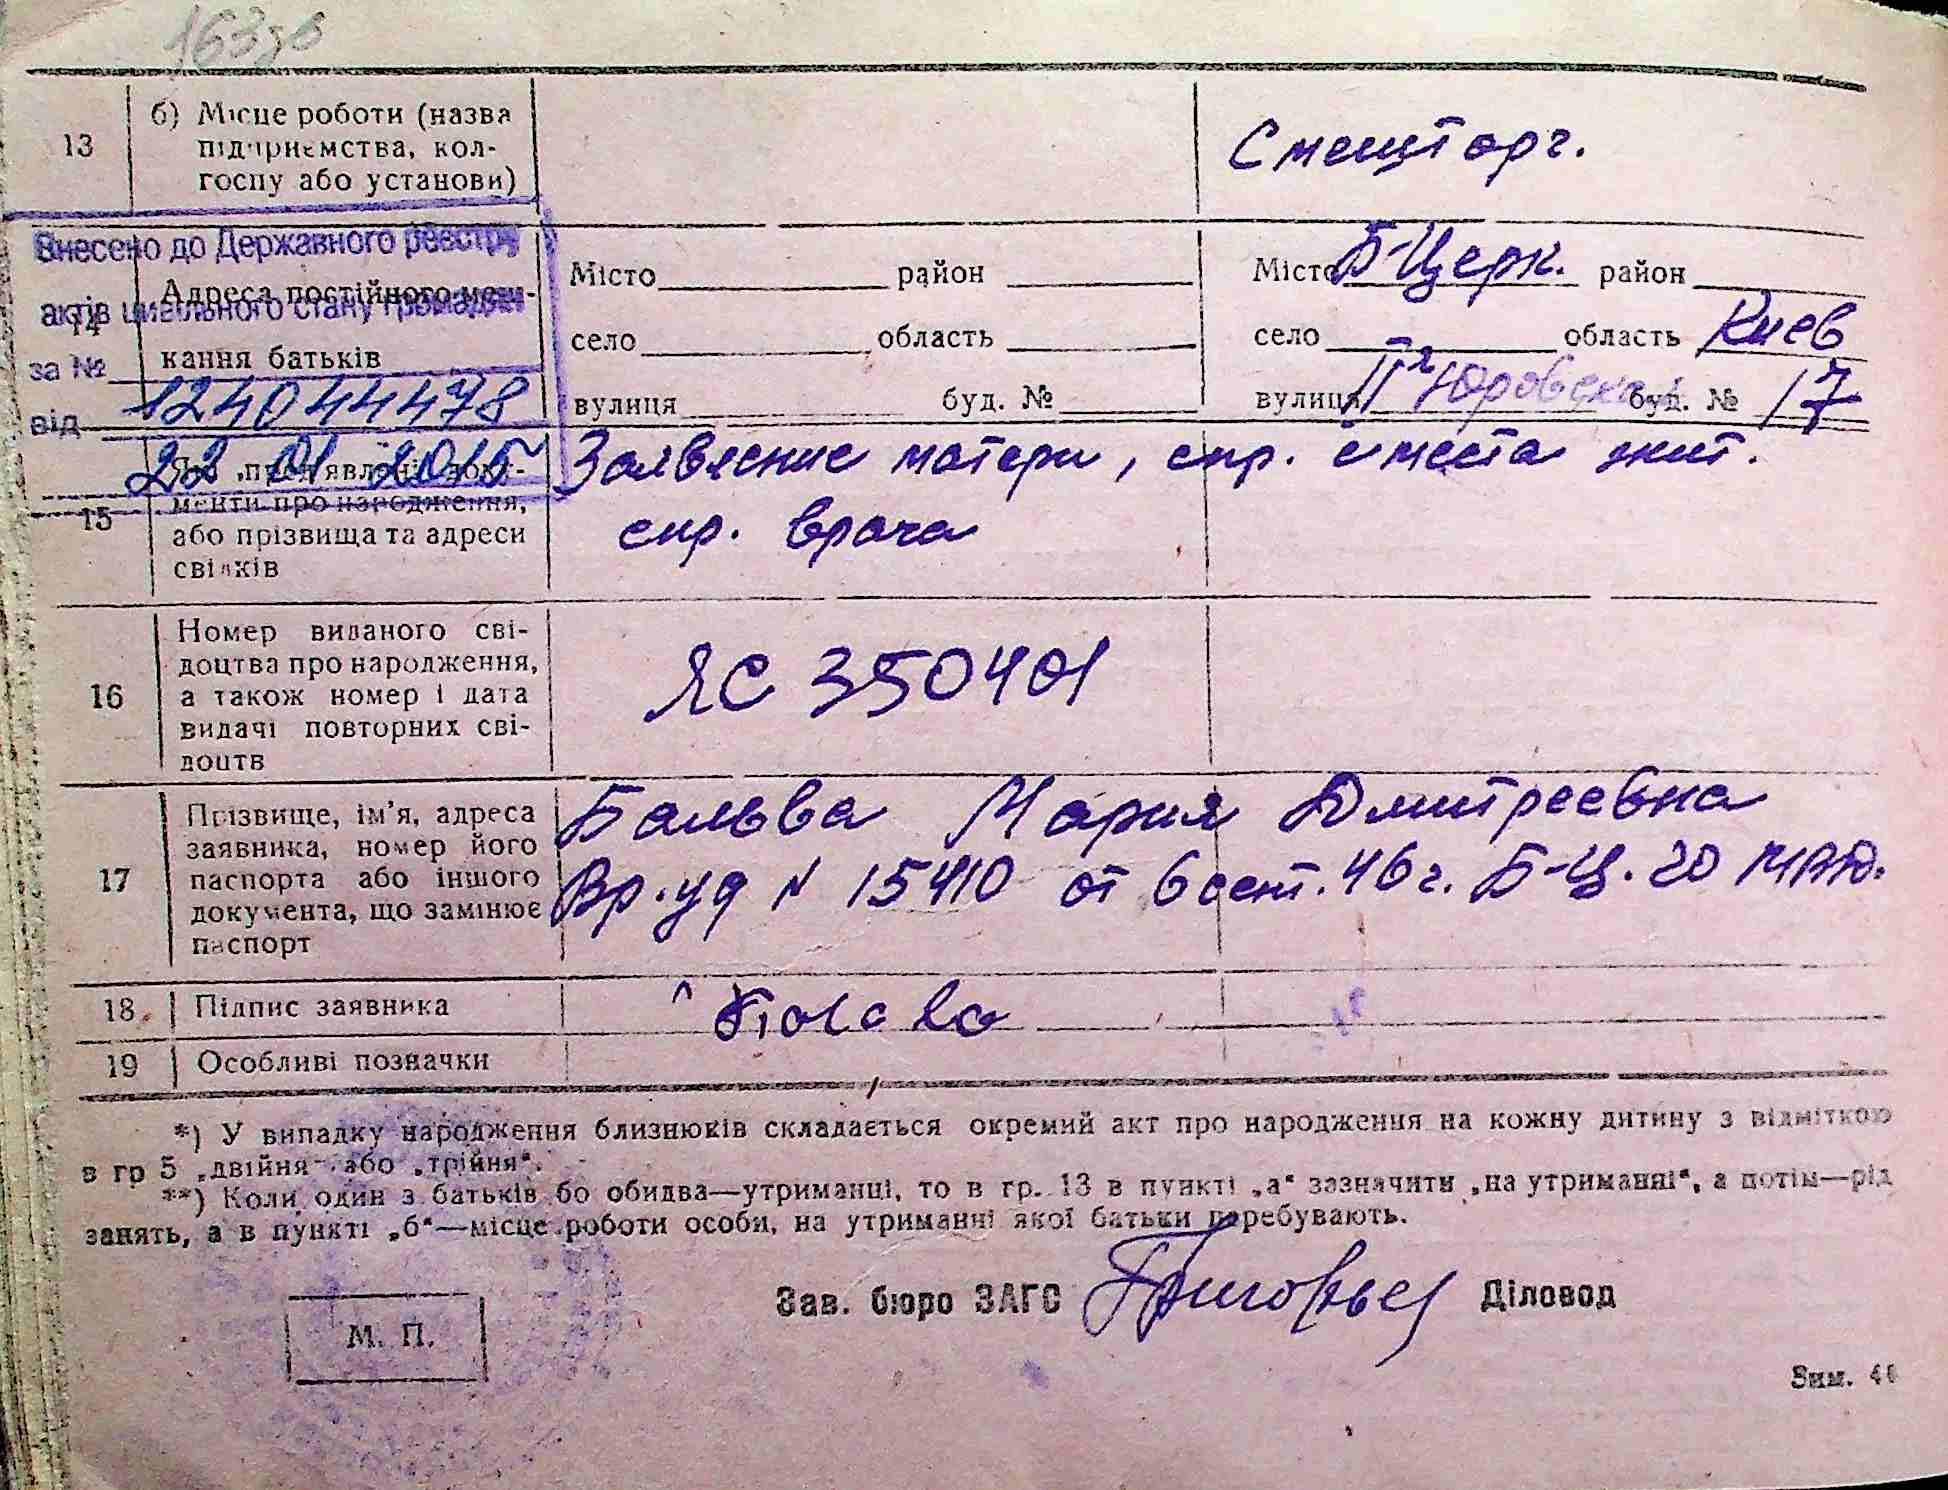 163зв
13 б) Місце роботи (назва
підприємства, кол-
госпу або установи)
Смешторг.
Внесено до Державного реєстру
актів цивільного стану громадян
за № 124044478
від 22 01 2015
14 Адреса постійного меш-
кання батьків
Місто район
село область
вулиця буд. №
Місто Б-Церк. район
село область Киев
вулиця буд. № 17
15 Які пред'явлені доку-
менти про народження,
або прізвища та адреси
свідків
Заявление матери, спр. с места жит.
спр. врача
16 Номер виданого сві-
доцтва про народження,
а також номер і дата
видачі повторних сві-
доцтв
ЯС 350401
17 Прізвище, ім'я, адреса
заявника, номер його
паспорта або іншого
документа, що замінює
паспорт
Бальва Мария Дмитреевна
Вр. уд N 15410 от 6 сент. 46 г. Б-Ц. ГО МВД.
18 Підпис заявника
19 Особливі позначки
*) У випадку народження близнюків складається окремий акт про народження на кожну дитину з відміткою
в гр 5 „двійня“ або „трійня“.
**) Коли один з батьків бо обидва—утриманці, то в гр. 13 в пункті „а“ зазначити „на утриманні“, а потім—рід
занять, а в пункті „б“—місце роботи особи, на утриманні якої батьки перебувають.
Зав. бюро ЗАГС Діловод
М. П.
Зим. 46